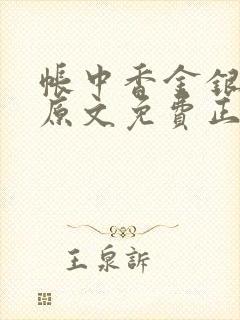 帳中香金銀
原文免費正
王泉訴